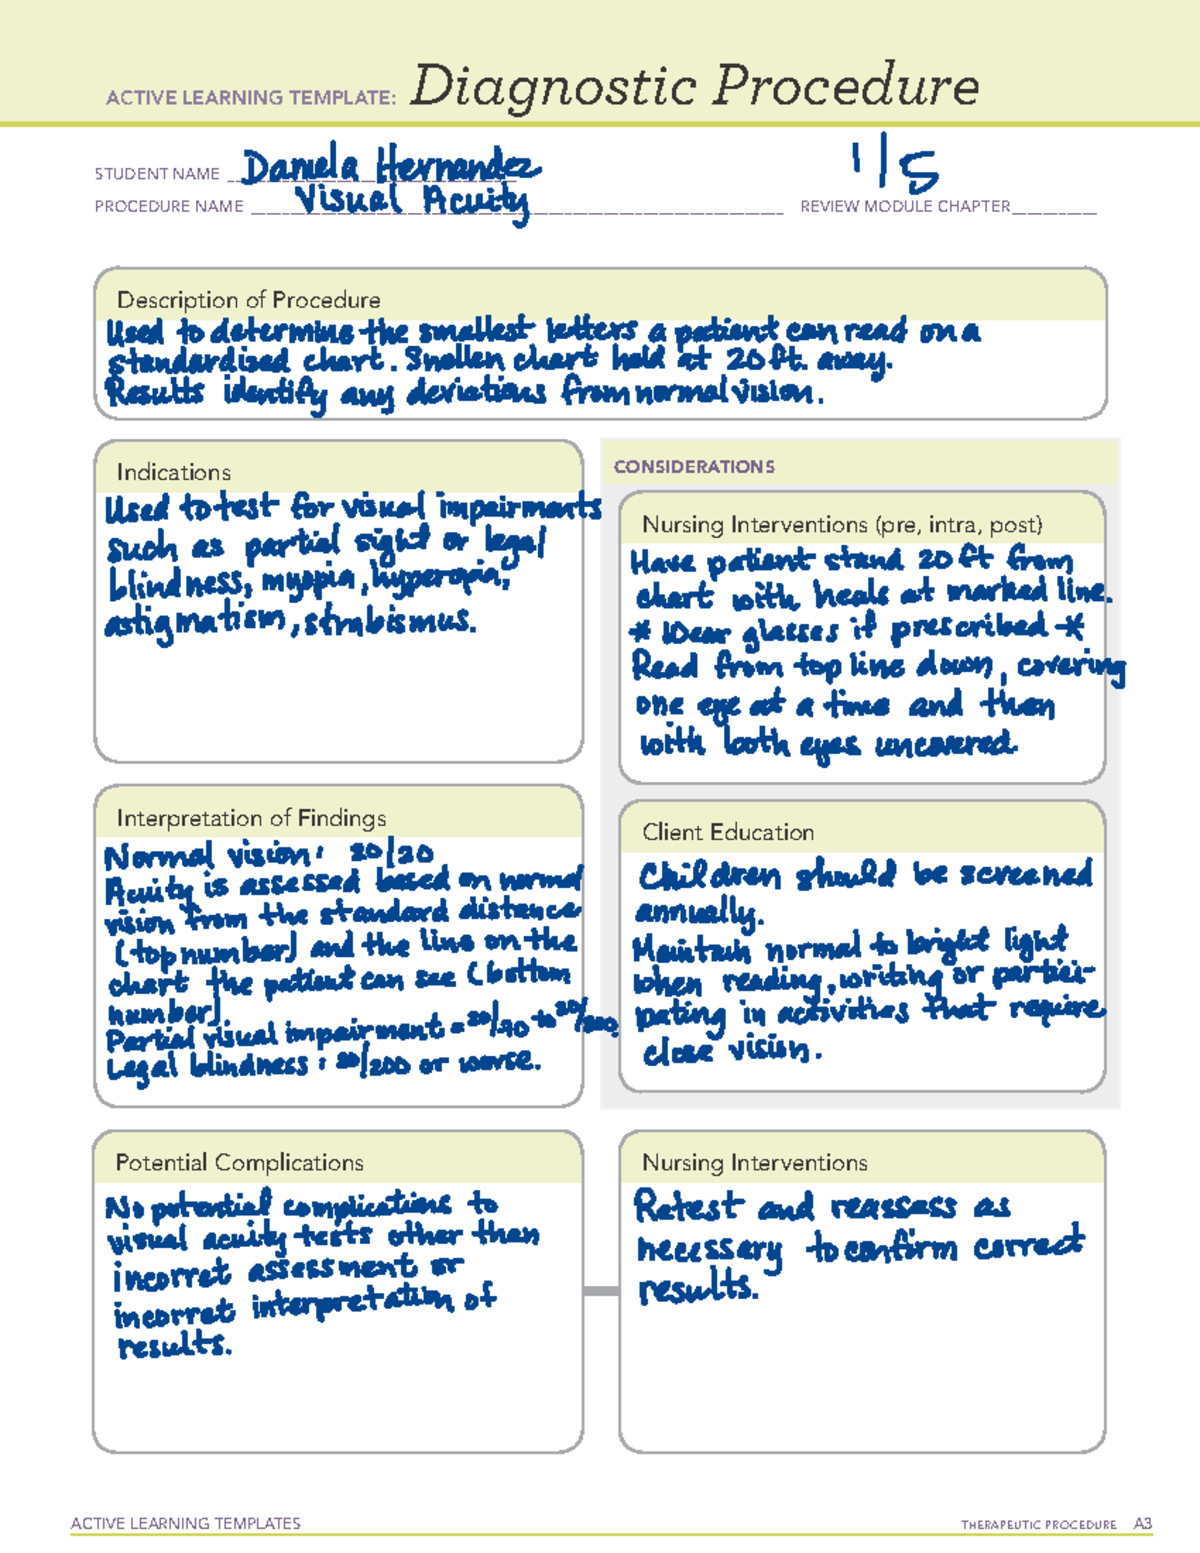 ACTIVE LEARNING TEMPLATE: Diagnostic Procedure
STUDENT NAME Daniela Hernandez
PROCEDURE NAME Visual Acuity
1/5
REVIEW MODULE CHAPTER
Description of Procedure
Used to determine the smallest letters a patient can read on a
standardized chart. Snellen chart held at 20 ft. away.
Results identify any deviations from normal vision.
Indications
Used to test for visual impairments
such as partial sight or legal
blindness, myopia, hyperopia,
astigmatism, strabismus.
CONSIDERATIONS
Nursing Interventions (pre, intra, post)
Have patient stand 20 ft from
chart with heels at marked line.
* Wear glasses if prescribed *
Read from top line down, covering
one eye at a time and then
with both eyes uncovered.
Interpretation of Findings
Normal vision: 20/20
Acuity is assessed based on normal
vision from the standard distance
(top number) and the line on the
chart the patient can see (bottom
number).
Partial visual impairment = 20/70 to 20/200.
Legal blindness: 20/200 or worse.
Client Education
Children should be screened
annually.
Maintain normal to bright light
when reading, writing or partici-
pating in activities that require
close vision.
Potential Complications
No potential complications to
visual acuity tests other than
incorret assessment or
incorret interpretation of
results.
Nursing Interventions
Retest and reassess as
necessary to confirm correct
results.
ACTIVE LEARNING TEMPLATES
THERAPEUTIC PROCEDURE A3